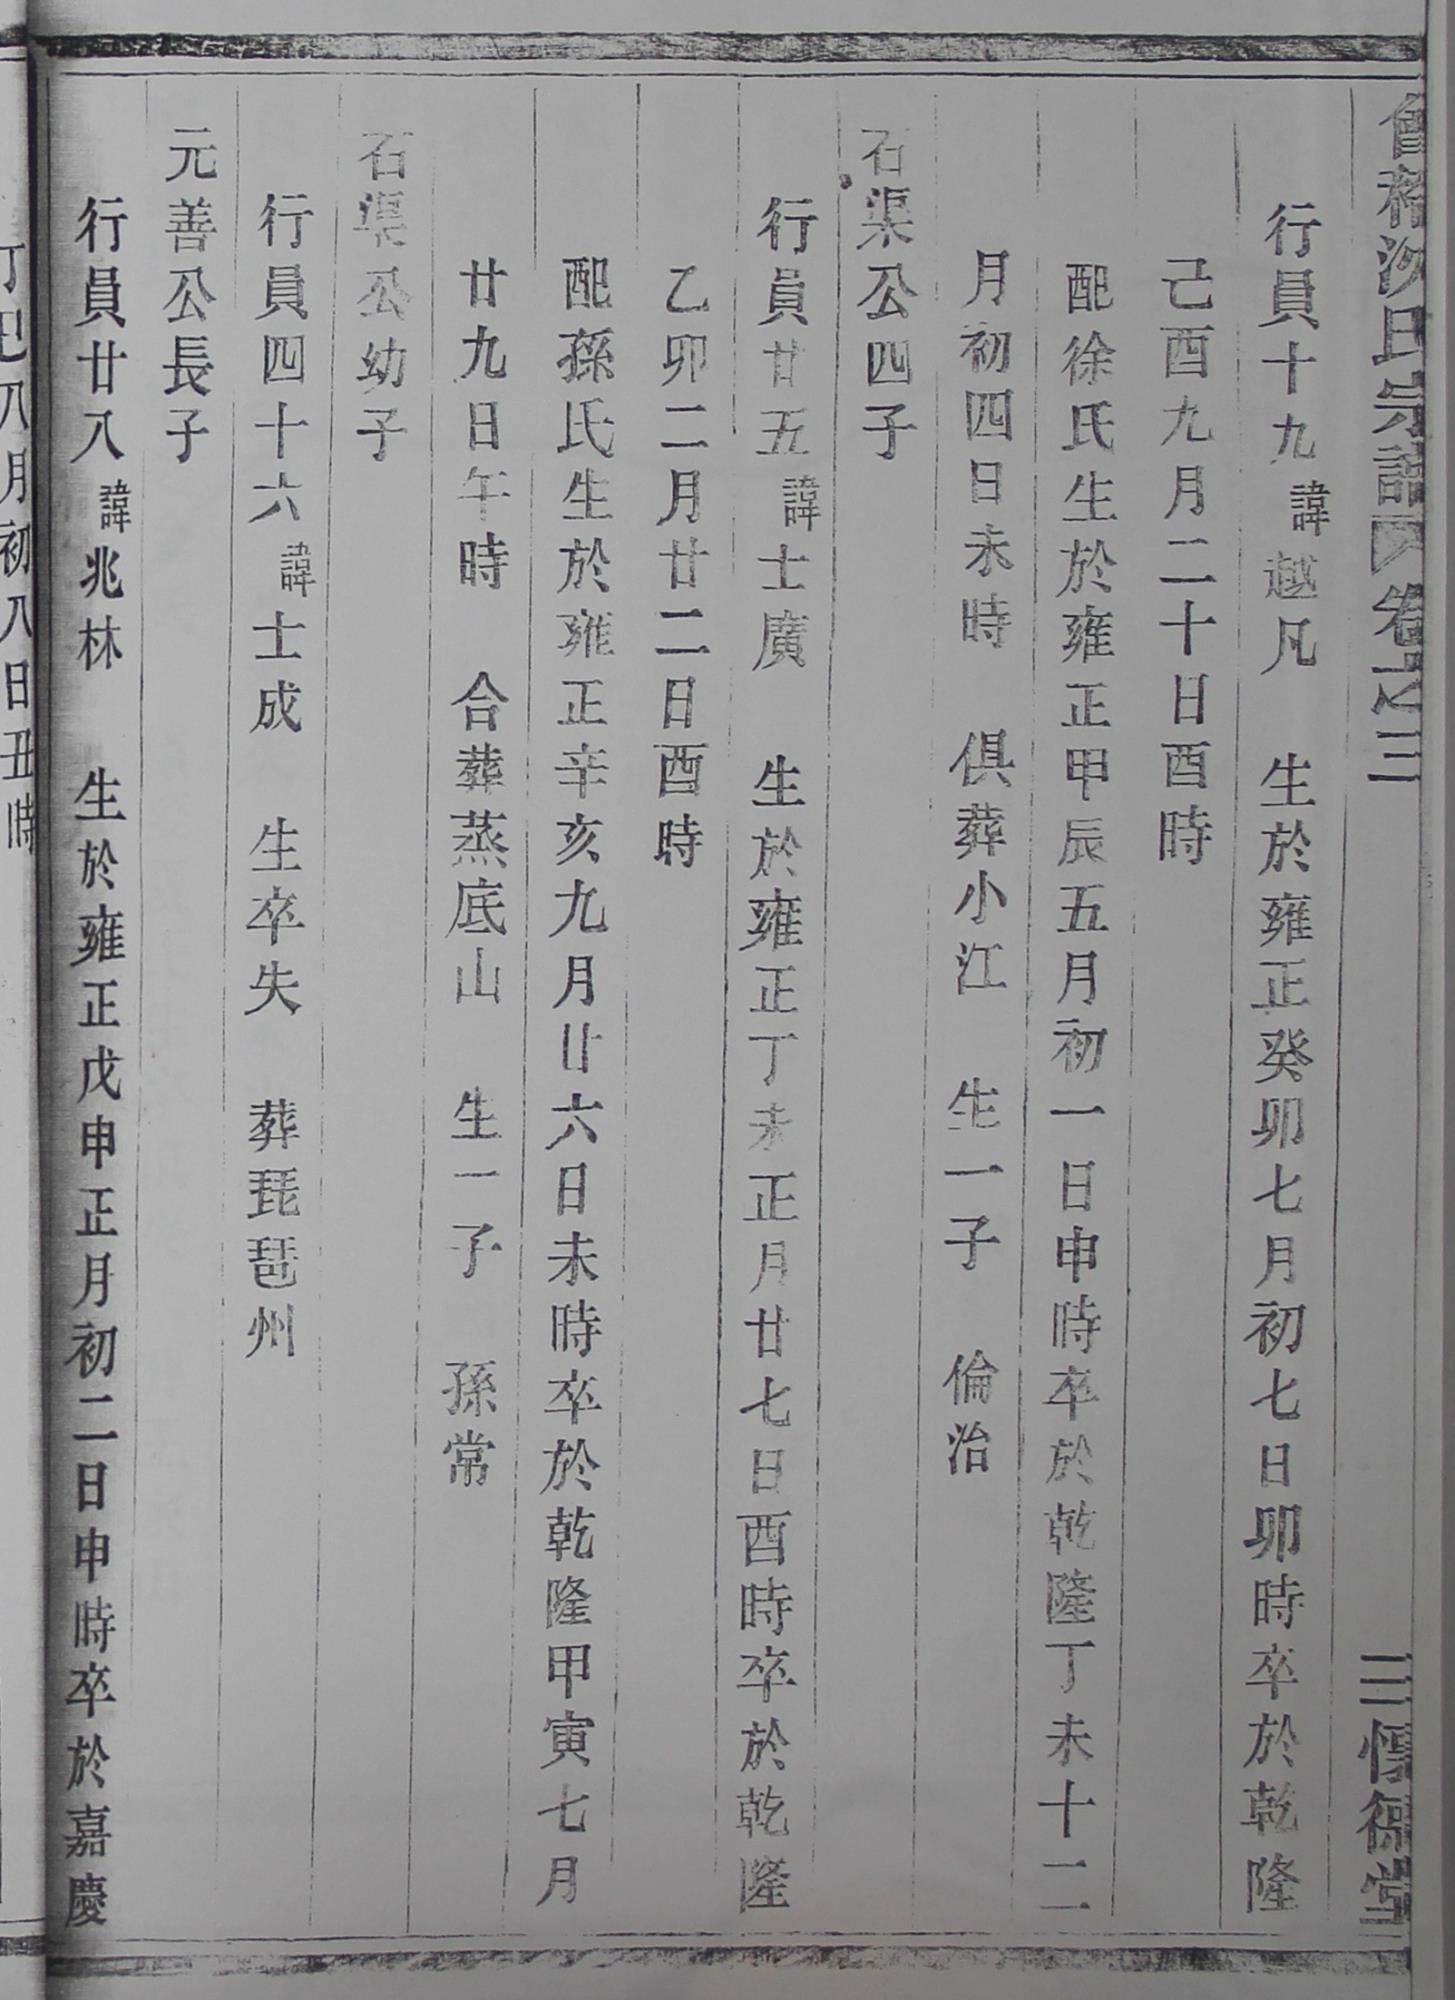 會稽沈氏宗譜 卷之三 三 惇德堂
行員十九諱越凡 生於雍正癸卯七月初七日卯時卒於乾隆
己酉九月二十日酉時
配徐氏生於雍正甲辰五月初一日申時卒於乾隆丁未十二
月初四日未時 俱葬小江 生一子 倫治
石渠公四子
行員廿五諱士廣 生於雍正丁未正月廿七日酉時卒於乾隆
乙卯二月廿二日酉時
配孫氏生於雍正辛亥九月廿六日未時卒於乾隆甲寅七月
廿九日午時 合葬蒸底山 生一子 孫常
石渠公幼子
行員四十六諱士成 生卒失 葬琵琶州
元善公長子
行員廿八諱兆林 生於雍正戊申正月初二日申時卒於嘉慶
丁巳八月初八日丑時